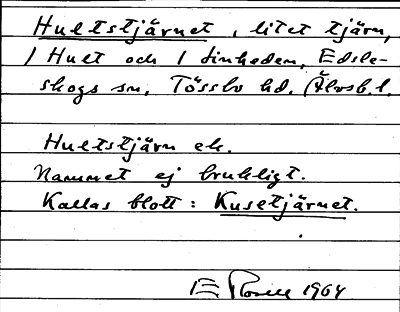 Hultstjärnet, litet tjärn,
1 Hult och 1 Linheden, Edsle-
skogs sn, Tössbo hd. Älvsb. l.
Hultstjärn ek.
Namnet ej brukligt.
Kallas blott: Kusetjärnet.
E 1964